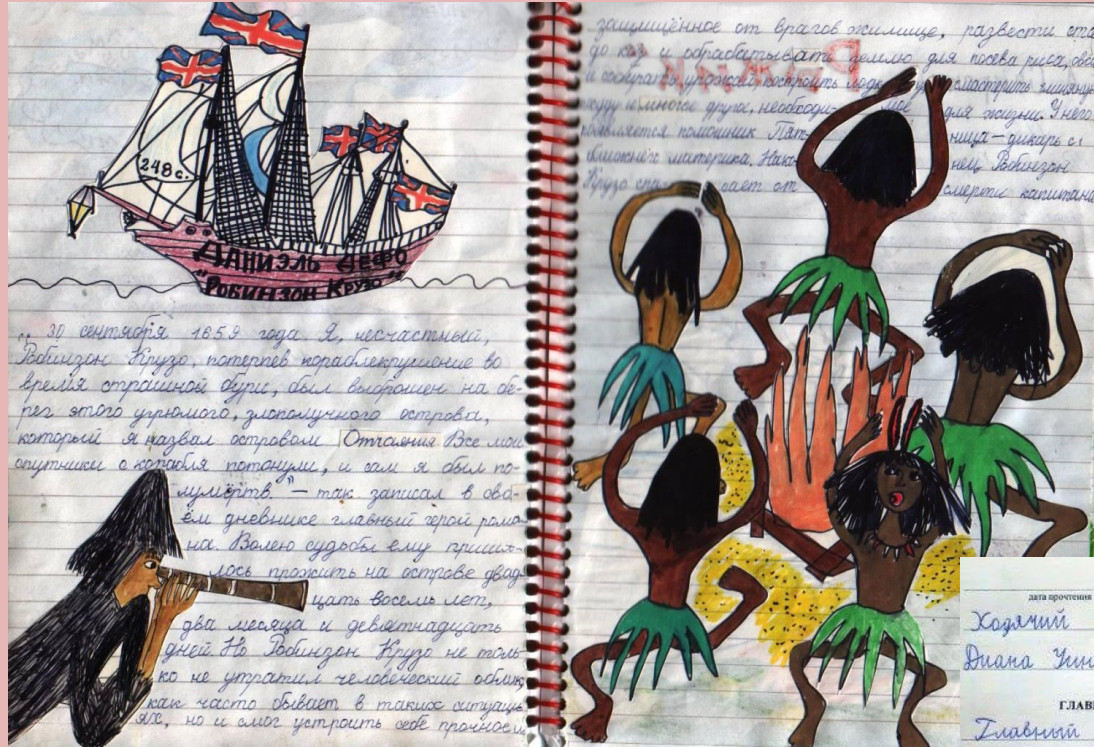 248 с.
ДАНИЭЛЬ ДЕФО
"РОБИНЗОН КРУЗО"
„30 сентября 1659 года. Я, несчастный,
Робинзон Крузо, потерпев кораблекрушение во
время страшной бури, был выброшен на бе-
рег этого угрюмого, злополучного острова,
который я назвал островом Отчаения. Все мои
спутники с корабля потонули, и сам я был по-
лумёртв." – так записал в сво-
ём дневнике главный герой рома-
на. Волею судьбы ему приш-
лось прожить на острове двад-
цать восемь лет,
два месяца и девятнадцать
дней. Но Робинзон Крузо не толь-
ко не утратил человеческий облик,
как часто бывает в таких ситуаци-
ях, но и смог устроить себе прочное и
защищённое от врагов жилище, развести ста
до коз и обрабатывать землю для посева риса,
и собирать урожай, построить смастрить глиняную
посуду и многое другое, необходи- мое для жизни. У него
появляется помощник Пят- ница – дикарь с
ближнех материка. Нако- нец Робинзон
Крузо спасает от смерти капитана
дата прочтения
Ходячий
Диана
ГЛАВ
Главный